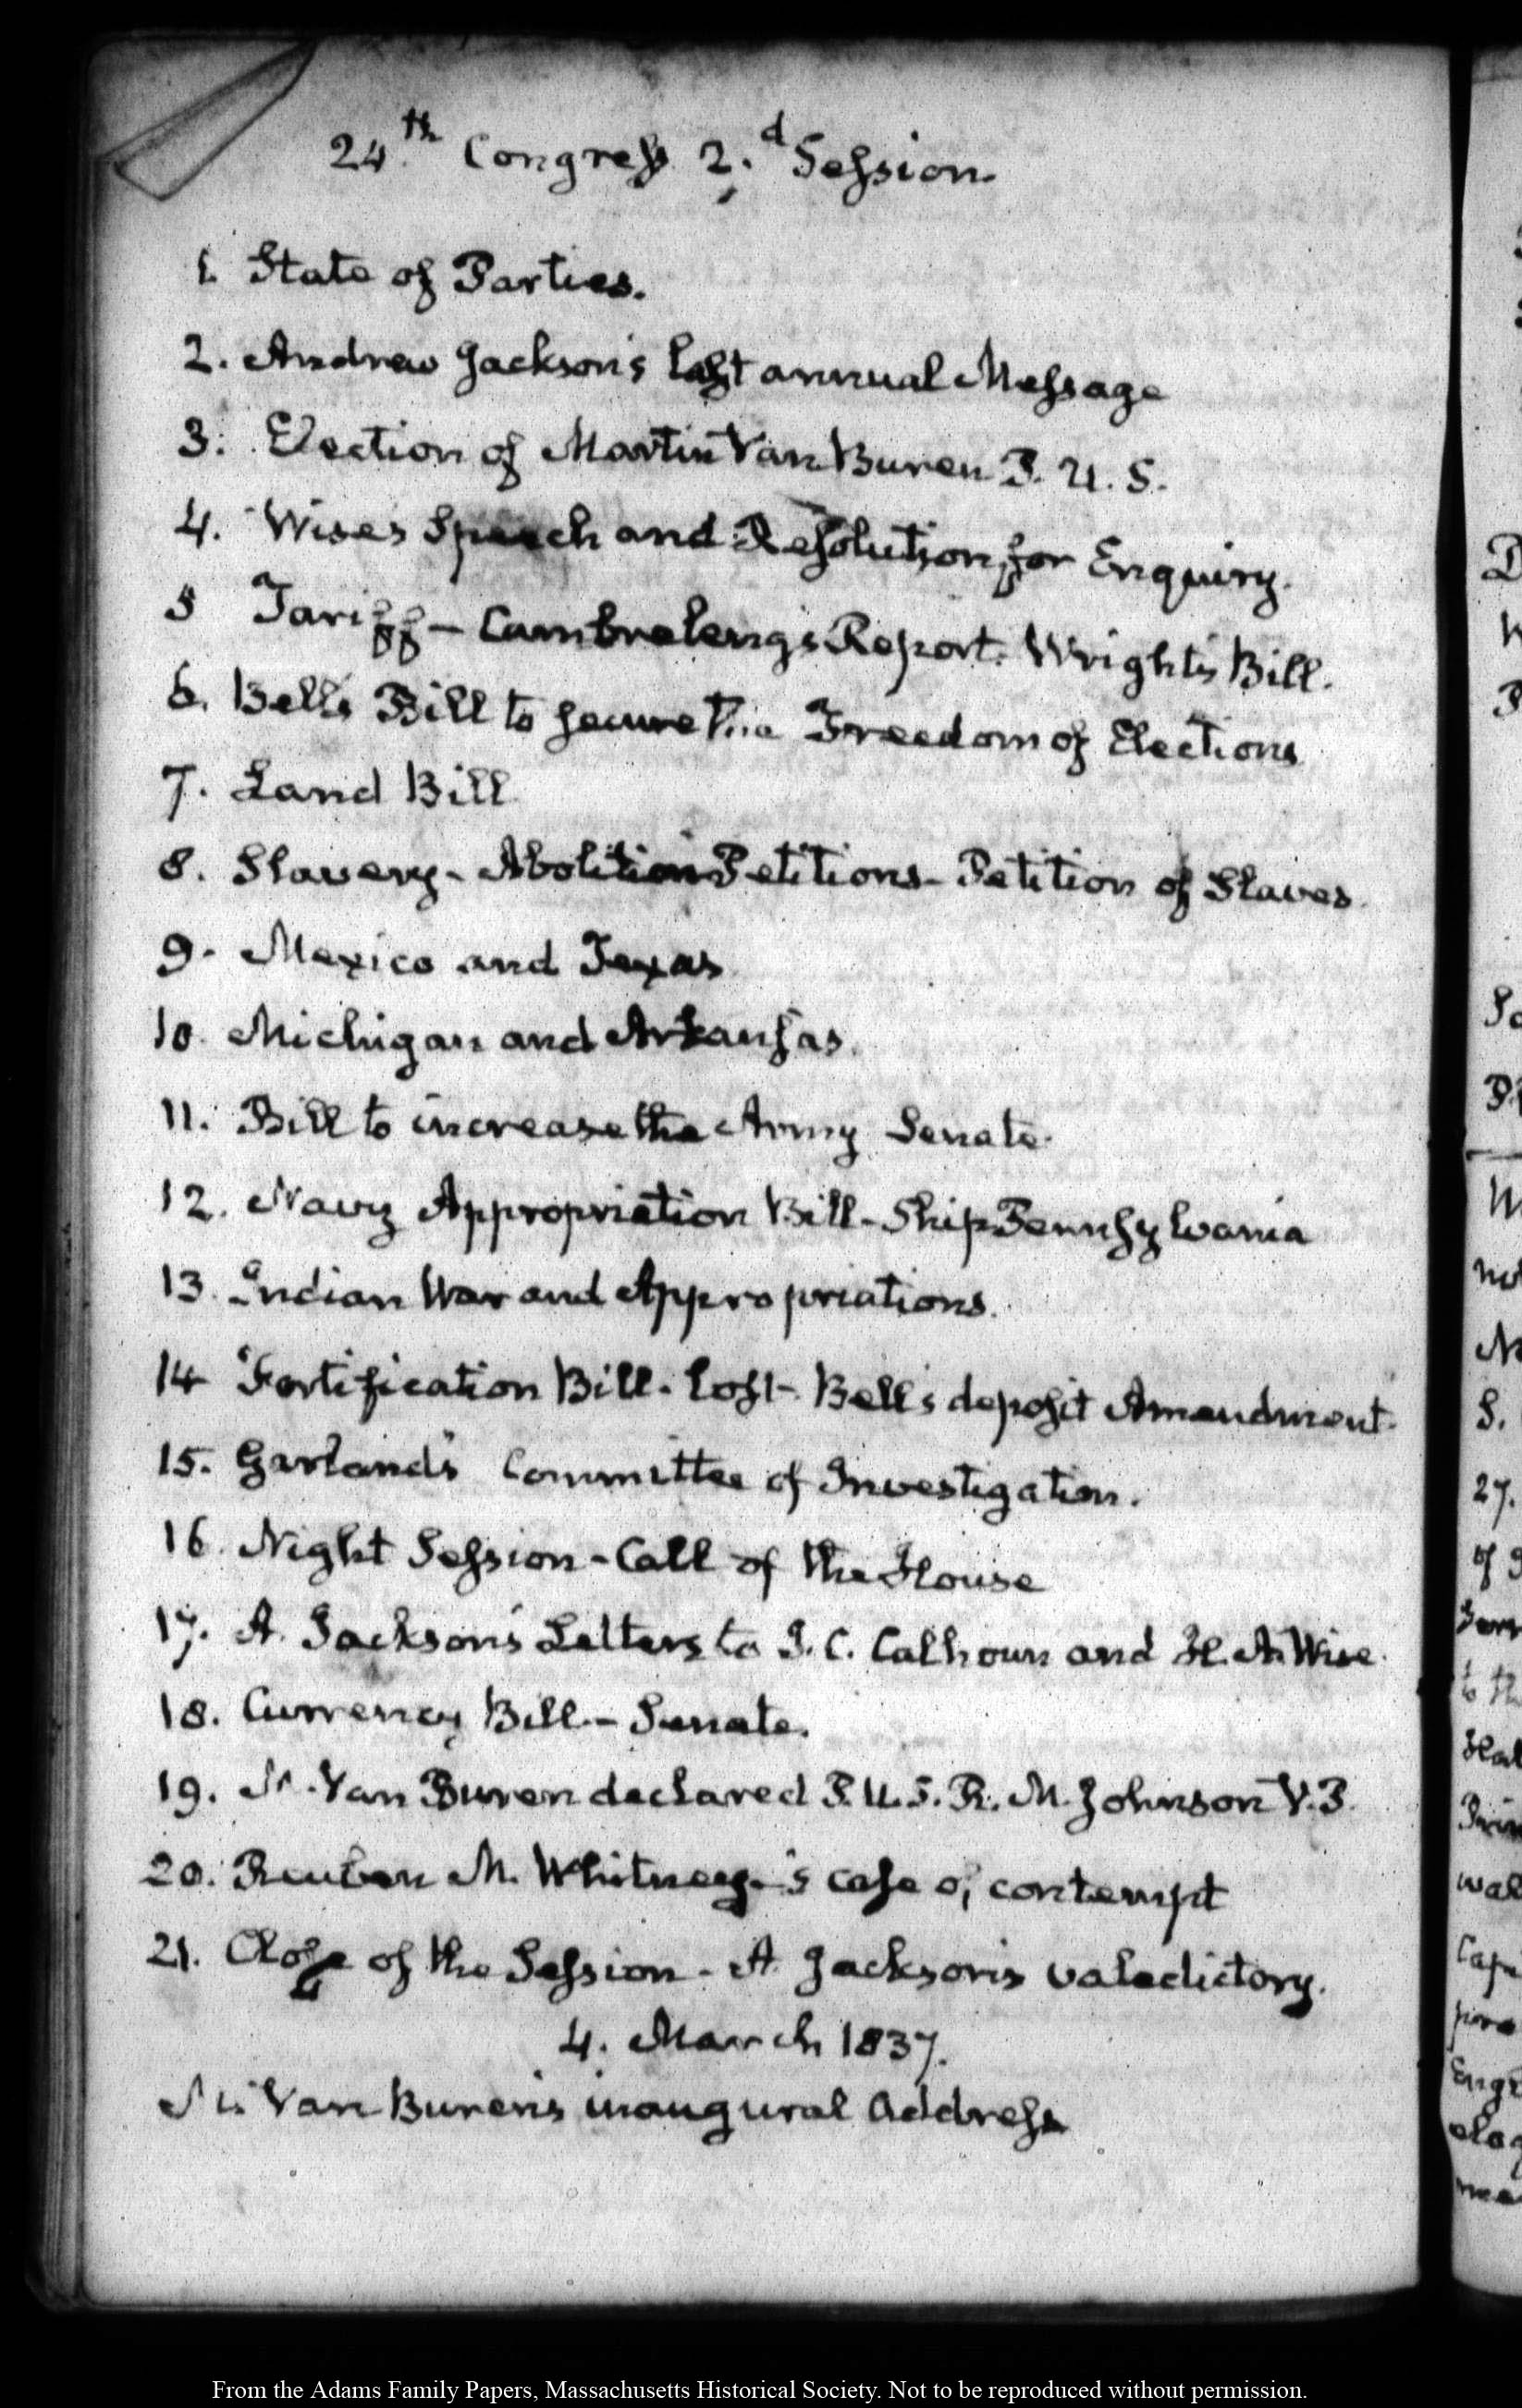 24.th Congress 2.d Session.
1. State of Parties.
2. Andrew Jackson's last annual Message
3. Election of Martin Van Buren P. U. S.
4. Wise's Speech and Resolution for Enquiry.
5 Tariff — Cambreleng's Report. Wright's Bill.
6. Bell's Bill to secure the Freedom of Elections
7. Land Bill
8. Slavery - Abolition Petitions - Petition of Slaves.
9. Mexico and Texas
10. Michigan and Arkansas.
11. Bill to increase the Army Senate.
12. Navy Appropriation Bill - Ship Pennsylvania
13. Indian War and Appropriations.
14 Fortification Bill - lost - Bell's deposit Amendment.
15. Garland's Committee of Investigation.
16. Night Session - Call of the House
17. A. Jackson's Letters to J. C. Calhoun and H. A. Wise.
18. Currency Bill - Senate.
19. M. Van Buren declared P. U. S. R. M. Johnson V. P.
20. Reuben M. Whitney's case of contempt
21. Close of the Session - A. Jackson's valedictory.
4. March 1837.
Mr. Van Buren's inaugural Address
From the Adams Family Papers, Massachusetts Historical Society. Not to be reproduced without permission.